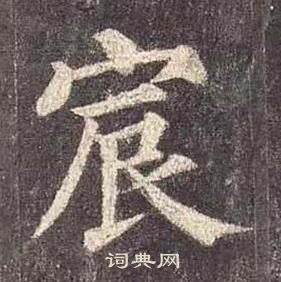 宸
词典网